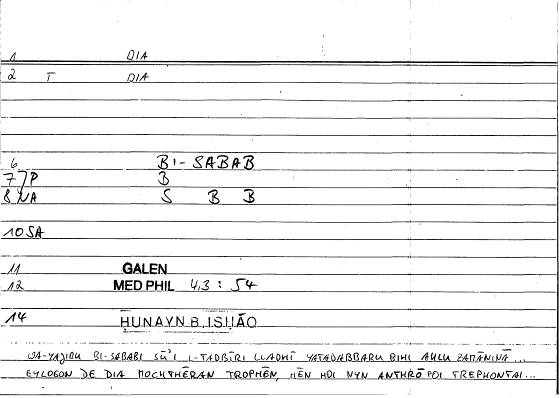 1 DIA
2 T DIA
6 BI-SABAB
7 P B
8 NA S B B
10 SA
11 GALEN
12 MED PHIL 4,3 : 54
14 HUNAYN B. ISḤĀQ
WA-YAJIDU BI-SABABI SŪ'I L-TADBĪRI LLADHĪ YATADABBARU BIHI AHLU ZAMĀNINĀ...
EYLOGON DE DIA MOCHTHĒRAN TROPHĒN, HĒN HOI NYN ANTHRŌPOI TREPHONTAI...